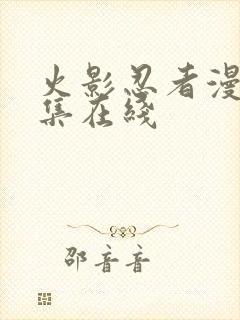 火影忍者漫
集在线
邵音音